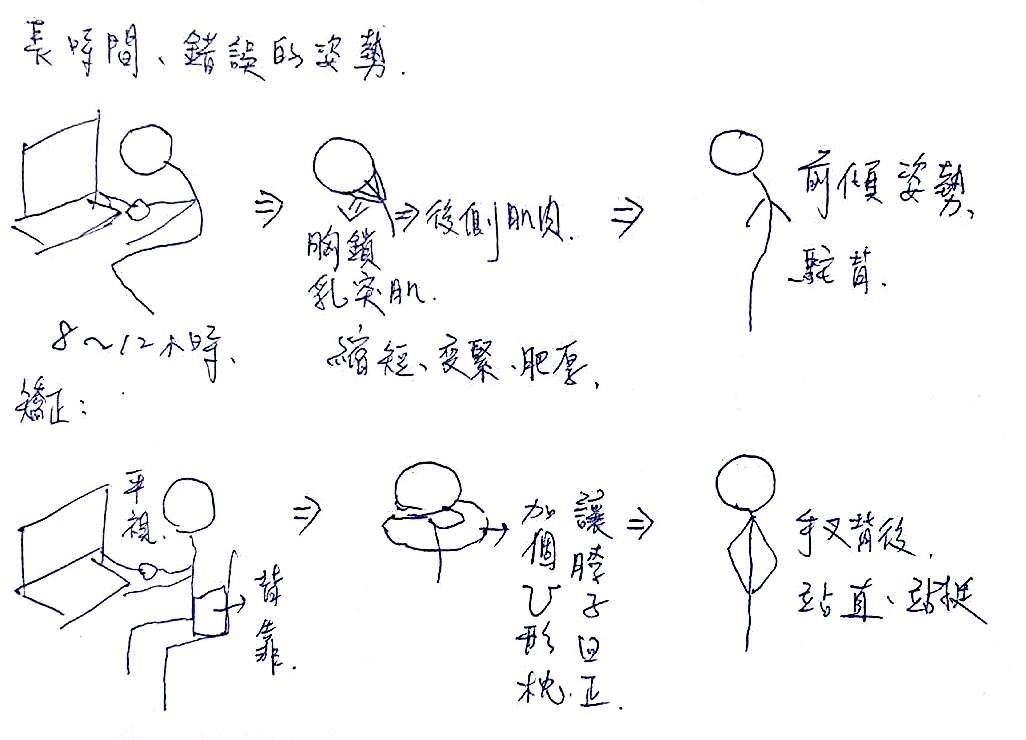 長時間、錯誤的姿勢.
胸鎖
乳突肌.
後側肌肉.
前傾姿勢、
駝背.
8～12小時、
縮短、变緊、肥厚、
矯正：
平視.
背靠.
加個U形枕.
讓脖子回正.
手叉背後.
站直、站挺